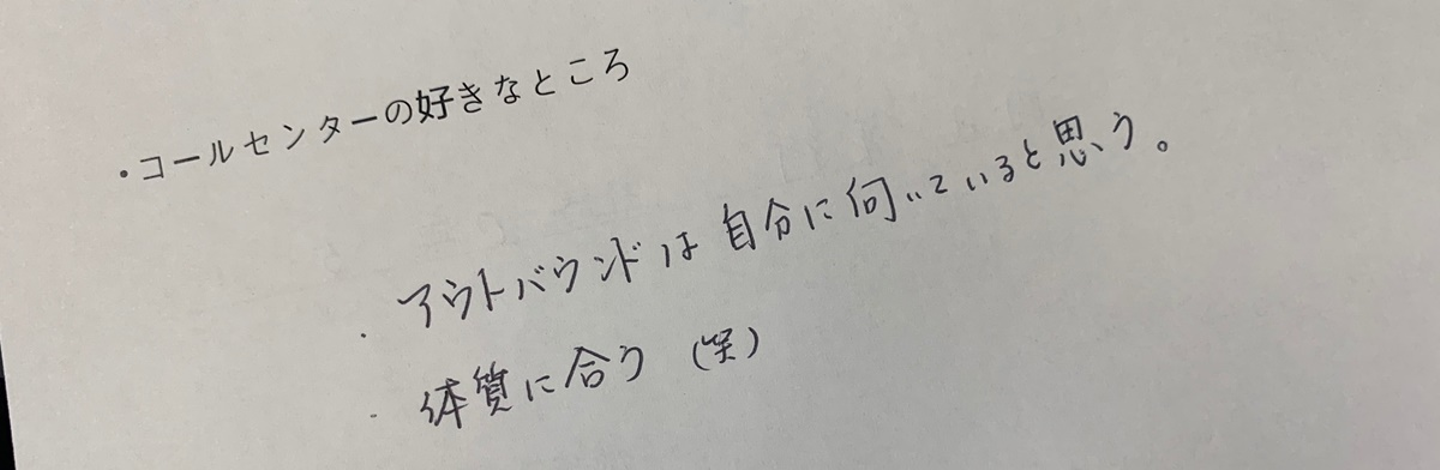 ・コールセンターの好きなところ
・アウトバウンドは自分に向いていると思う。
・体質に合う（笑）